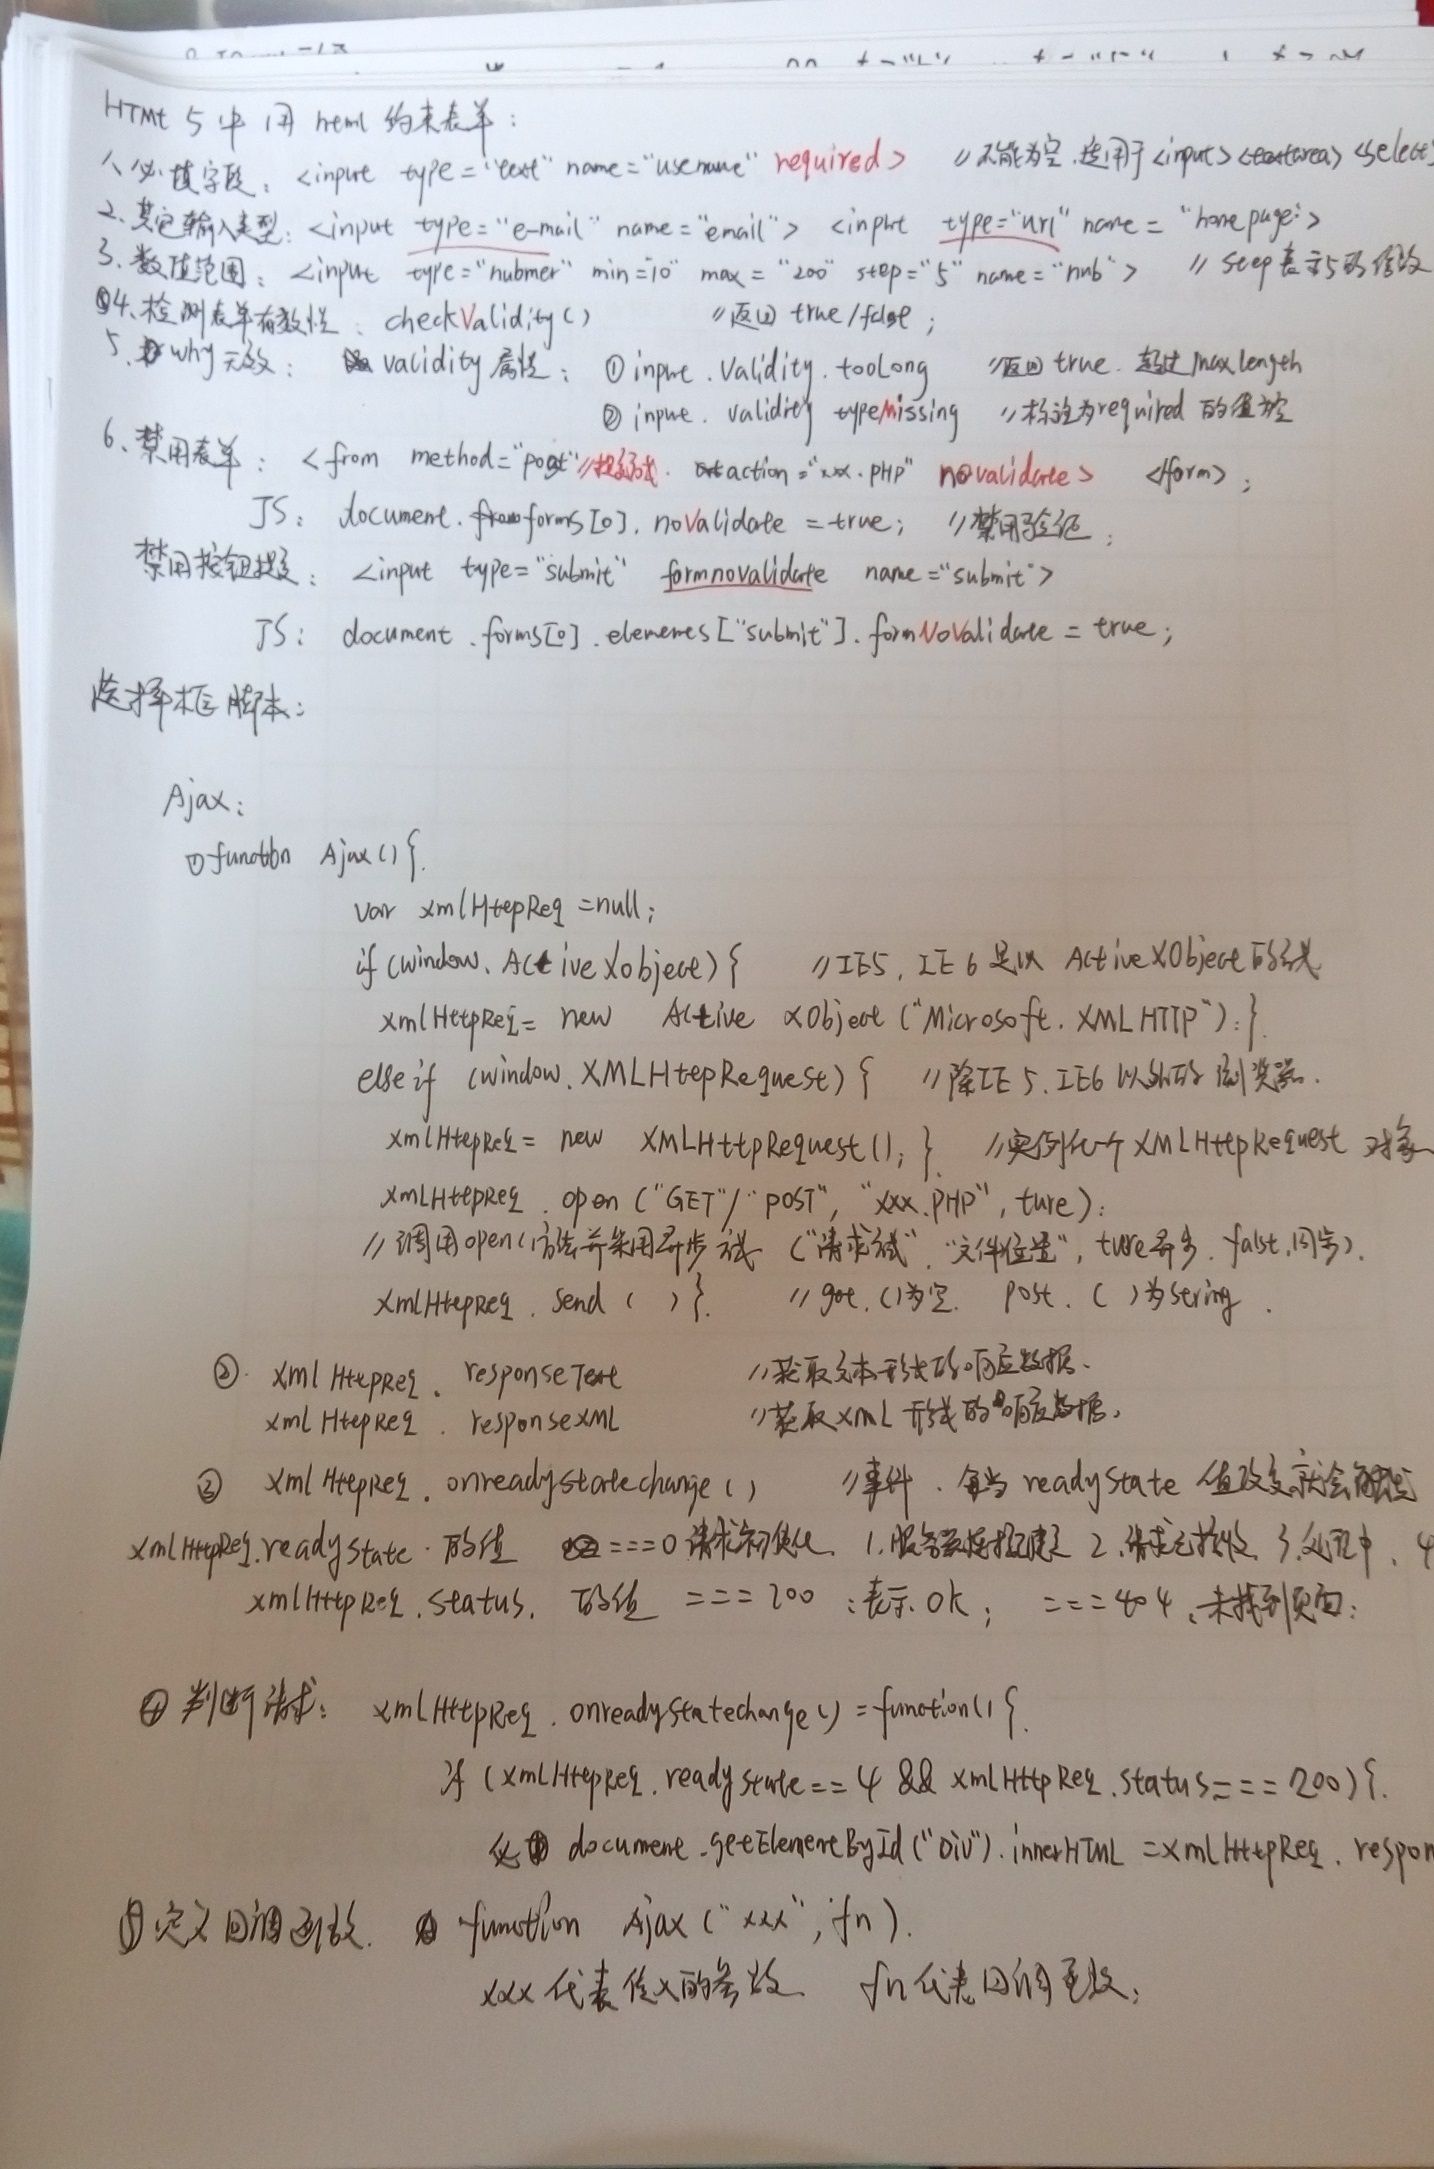 HTML 5中用html约束表单：
1、必填字段：<input type="text" name="usename" required> //不能为空.适用于<input> <textarea> <select
2、其它输入类型：<input type="e-mail" name="email"> <input type="url" name="homepage">
3、数值范围：<input type="nubmer" min="10" max="200" step="5" name="nub"> //step表示5的倍数
4、检测表单有效性：checkValidity() //返回 true/false;
5、why无效：validity属性：① input.Validity.tooLong //返回true.超过maxlength
② input.validity typeMissing //标注为required的值为空
6、禁用表单：<from method="post"//提交方式. action="xxx.PHP" novalidate> </form>;
JS：document.forms[0].noValidate = true; //禁用验证;
禁用按钮提交：<input type="submit" formnovalidate name="submit">
JS：document.forms[0].elements["submit"].formNoValidate = true;
选择框脚本：
Ajax：
① function Ajax(){
var xmlHttpReq =null;
if(window.ActiveXobject){ //IE5,IE6是以ActiveXObject的方式
xmlHttpReq= new ActiveXObject("Microsoft.XMLHTTP");}
else if (window.XMLHttpRequest){ //除IE5、IE6以外的浏览器.
xmlHttpReq= new XMLHttpRequest(); } //实例化一个XMLHttpRequest 对象
xmlHttpReq.open("GET"/"POST", "xxx.PHP", ture);
//调用open()方法并采用异步方式 ("请求方式", "文件位置", ture异步.falst.同步).
xmlHttpReq.send( )} //get.()为空. post.( )为string.
② xmlHttpReq.responseText //获取文本形式的响应数据.
xmlHttpReq.responseXML //获取XML形式的响应数据.
③ xmlHttpReq.onreadystatechange() //事件.每当readyState值改变就会触发
xmlHttpReq.readystate.的值 ===0请求初始化 1.服务器连接建立 2.请求已接收 3.处理中、4
xmlHttpReq.status.的值 ===200：表示.OK; ===404、未找到页面;
④ 判断请求：xmlHttpReq.onreadystatechange()=function(){
if (xmlHttpReq.readystate==4 && xmlHttpReq.status===200){
document.getElementById("Div").innerHTML =xmlHttpReq.respon
⑤定义回调函数. function Ajax("xxx",fn).
xxx代表传入的参数 fn代表回调函数;